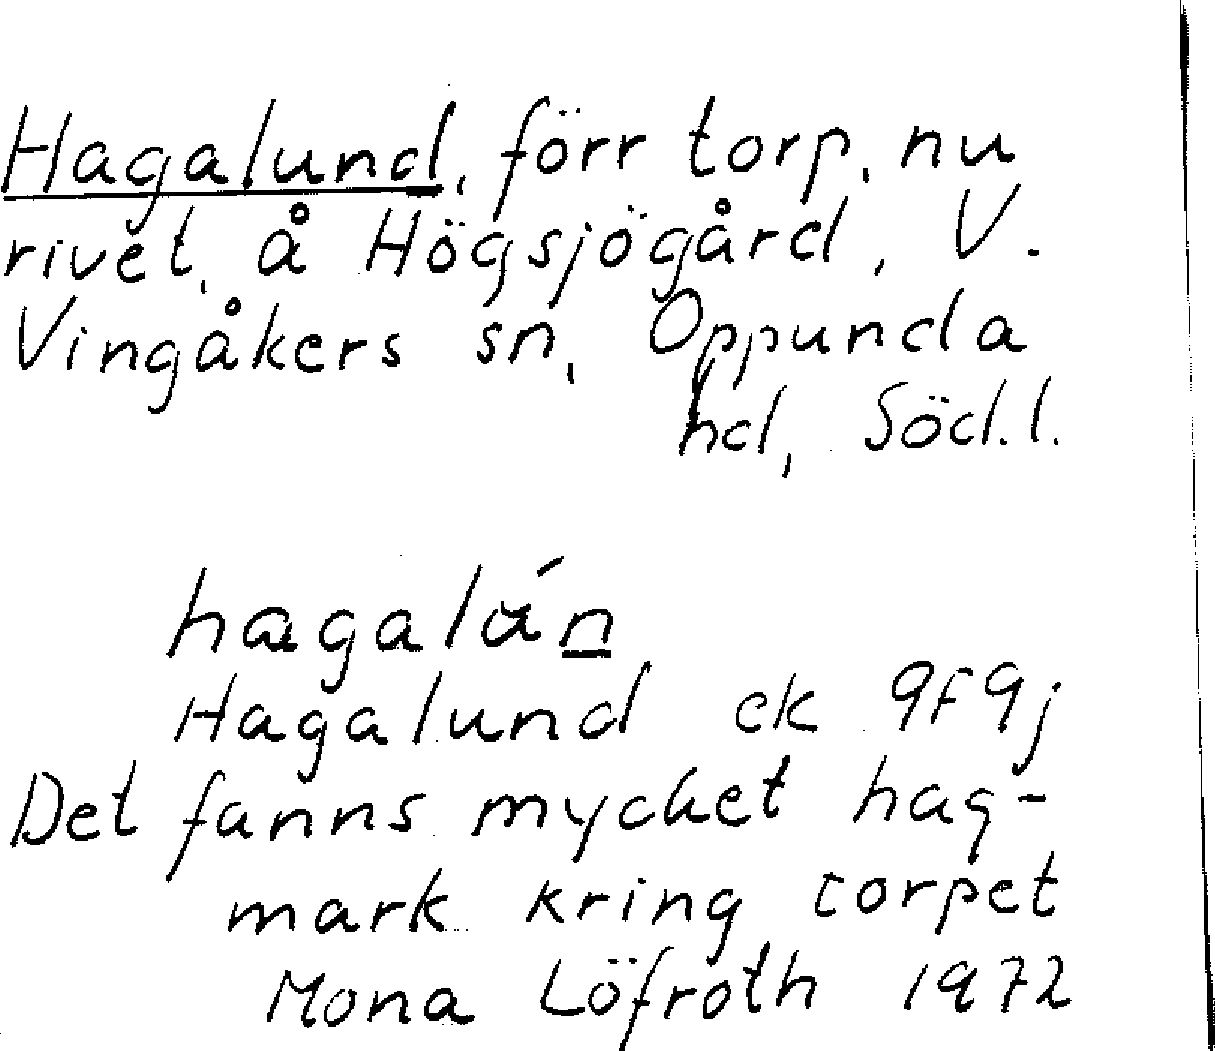 Hagalund, förr torp, nu
rivet, å Högsjögård, V.
Vingåkers sn, Oppunda
hd, Söd.l.
hagalún
Hagalund ek 9F9j
Det fanns mycket hag-
mark kring torpet
Mona Löfroth 1972